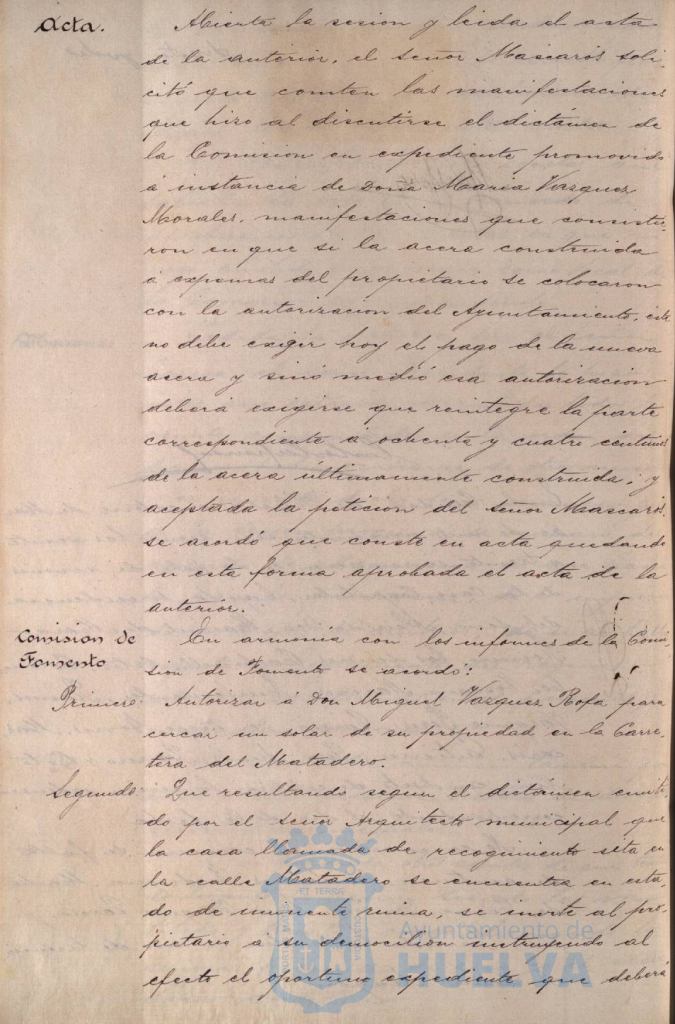 Acta.
Abierta la sesion y leida el acta
de la anterior, el señor Mascarós soli-
citó que consten las manifestaciones
que hizo al discutirse el dictámen de
la Comision en expediente promovido
á instancia de Doña Maria Vazquez
Morales, manifestaciones que consistie-
ron en que si la acera construida
á expensas del propietario se colocaron
con la autorizacion del Ayuntamiento, este
no debe exigir hoy el pago de la nueva
acera y sinó medió esa autorizacion
deberá exigirse que reintegre la parte
correspondiente á ochenta y cuatro céntimos
de la acera últimamente construida; y
aceptada la peticion del señor Mascarós
se acordó que conste en acta quedando
en esta forma aprobada el acta de la
anterior.
Comision de
Fomento
En armonía con los informes de la Comi-
sion de Fomento se acordó:
Primero: Autorizar á Don Miguel Vazquez Rofa para
cercar un solar de su propiedad en la Carre-
tera del Matadero.
Segundo: Que resultando segun el dictámen emiti-
do por el señor Arquitecto municipal que
la casa llamada de recogimiento sita en
la calle Matadero se encuentra en esta-
do de inminente ruina, se invite al pro-
pietario a su demolicion instruyendo al
efecto el oportuno expediente que deberá
Ayuntamiento de
HUELVA